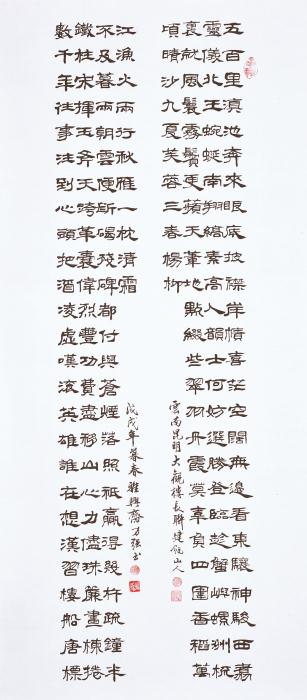 五百里滇池奔來眼底披襟岸幘喜茫茫空闊無邊看東驤神駿西翥
靈儀北走蜿蜒南翔縞素高人韻士何妨選勝登臨趁蟹嶼螺洲梳
裹就風鬟霧鬢更蘋天葦地點綴些翠羽丹霞莫辜負四圍香稻萬
頃晴沙九夏芙蓉三春楊柳
雲南昆明大觀樓長聯 山人
數千年往事注到心頭把酒凌虛嘆滾滾英雄誰在想漢習樓船唐標
鐵柱宋揮玉斧元跨革囊偉烈豐功費盡移山心力儘珠簾畫棟捲
不及暮雨朝雲便斷碣殘碑都付與蒼煙落照祇贏得幾杵疏鐘半
江漁火兩行秋雁一枕清霜
戊戌年暮春 書